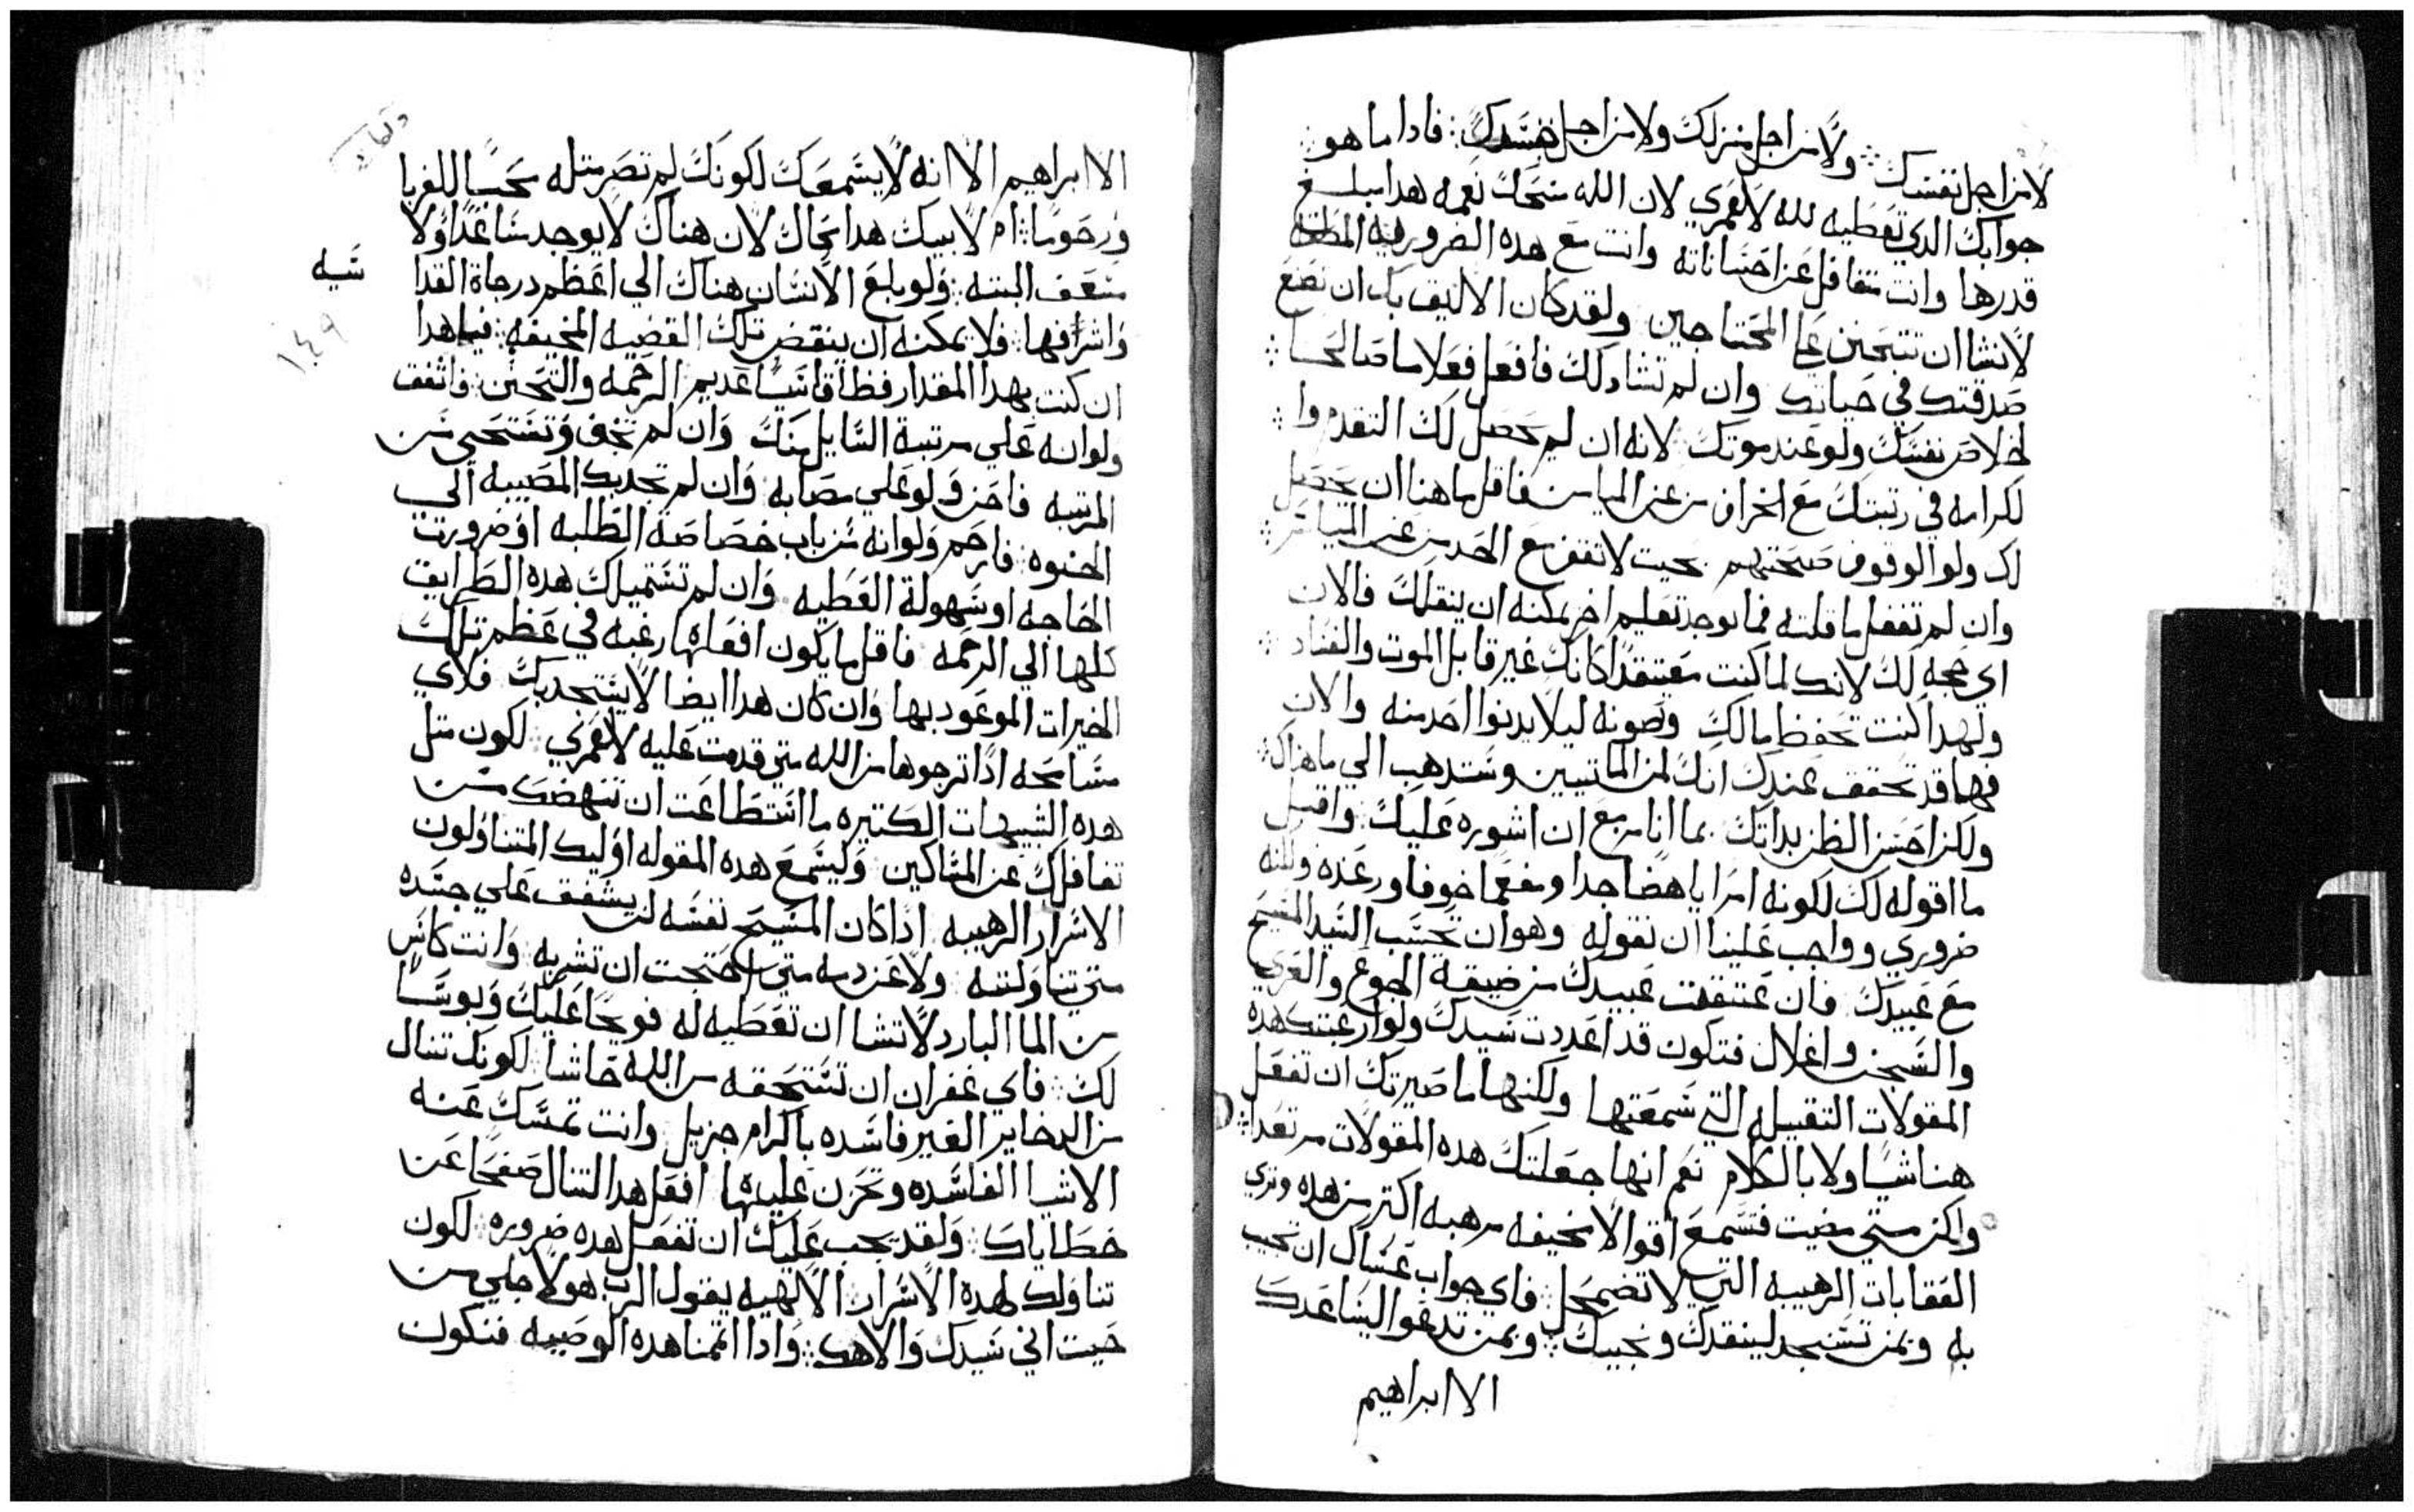 لامن اجل نفسك ولا من اجل منزلك ولا من اجل جسدك فاذا ما هو
جوابك الدي تعطيه لله لاعمري لان الله منحك نعمه هدا مبلغ
قدرها وانت متغافل عن احساناته وانت مع هده الضروريه
لاتشا ان تتحنن علي المحتاجين ولقد كان الاليق بك ان تصنع
صدقتك في حياتك وان لم تشا دلك فافعل فعلا ما صالحا
لخلاص نفسك ولو عند موتك لانه ان لم يحصل لك التقدم وا
لكرامه في رتبتك مع الخراف من عن الميامن فاقل ما هنا ان يحصل
لك ولو الوقوف صحبتهم بحيت لاتقف مع الجدا من عن المياسر
وان لم تفعل ما قلته فما يوجد تعليم اخر يمكنه ان ينقلك فالان
اي حجه لك لانك لما كنت معتقدا كانك غير قابل الموت والفساد
ولهدا كنت تحفظ مالك وتصونه ليلا يدنوا احد منه والان
فها قد تحقق عندك انك لمن المايتين وستدهب الي ما هناك
ولكن احسن الظن بداتك بما انا مزمع ان اشوره عليك واقبل
ما اقوله لك لكونه امرا باهضا جدا ومفعما خوفا ورعده ولكنه
ضروري وواجب علينا ان نقوله وهو ان تحسب السيد المسيح
مع عبيدك فان عتقت عبيدك من ضيقة الجوع والعري
والسجن واغلال فتكون قد اعددت سيدك ولو ارعبتك هده
المقولات التقيله التي سمعتها ولكنها ما صيرتك ان تفعل
هنا شيا ولا بالكلام نعم انها جعلتك هده المقولات مرتعدا
ولكن متي مضيت فتسمع اقوالا مخيفه مرهبه اكتر من هده وتري
العقابات الرهيبه التي لا تضمحل فاي جواب عساك ان تجيب
به وبمن تستنجد لينقدك ويجيبك وبمن تدعو اليساعدك
الا ابراهيم
الا ابراهيم الا انه لا يسمعك لكونك لم تصر متله محبا للغربا
ورحوما ام لابيك هدا محاك لان هناك لايوجد مساعدا ولا
متعف البته ولو بلغ الانسان هناك الي اعظم درجاة القدا
سيه
واشرافها فلا يمكنه ان ينقض تلك القضيه المخيفه فيا هدا
١٤٩
ان كنت بهدا المقدار فظا قاسيا عديم الرحمه والتحنن فاشفق
ولو انه علي مرتبة السايل منك وان لم تخف وتستحي من
المرتبه فاحزن ولو علي مصابه وان لم تجدبك المصيبه الي
الحنوه فارحم ولو انه من باب خصاصة الطلبه او ضرورت
الحاجه او سهولة العطيه وان لم تستميلك هده الطرايق
كلها الي الرحمه فاقل ما يكون افعلها رغبه في عظم تلك
الخيرات الموعود بها وان كان هدا ايضا لايستجدبك فلاي
مسامحه ادا ترجوها من الله متي قدمت عليه لاعمري لكون متل
هده التبيهات الكتيره ما استطاعت ان تنهضك من
تغافلك عن المساكين وليسمع هده المقوله اوليك المتناولون
الاسرار الرهيبه ادا كان المسيح نفسه لم يشفق علي جسده
متي تناولته ولا عن دمه متي احتجت ان تشربه وانت كاس
من الما البارد لاتشا ان تعطيه له فويحا عليك وبوسا
لك فاي غفران ان تستحقه من الله حاشا لكونك تنال
من الدخاير الغير فاسده باكرام جزيل وانت تمسك عنه
الاشيا الفاسده وتحزن عليها افعل هدا لتنال صفحا عن
خطاياك ولقد يجب عليك ان تفعل هده ضروره لكون
تناولك لهدة الاسرار الالهيه يقول الرب هولاجلي من
حيت اني سيدك والاهك وادا اتممنا هده الوصيه فتكون